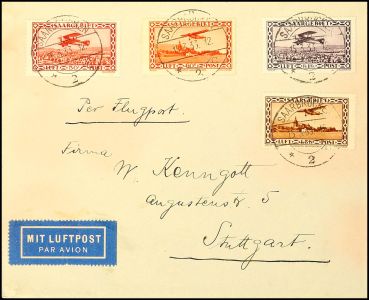 SAARGEBIET SAARGEBIET SAARGEBIET
SAARGEBIET
2 2 2
2
Per Flugpost.
Firma
W. Kenngott
Augustenstr 5
Stuttgart.
MIT LUFTPOST
PAR AVION